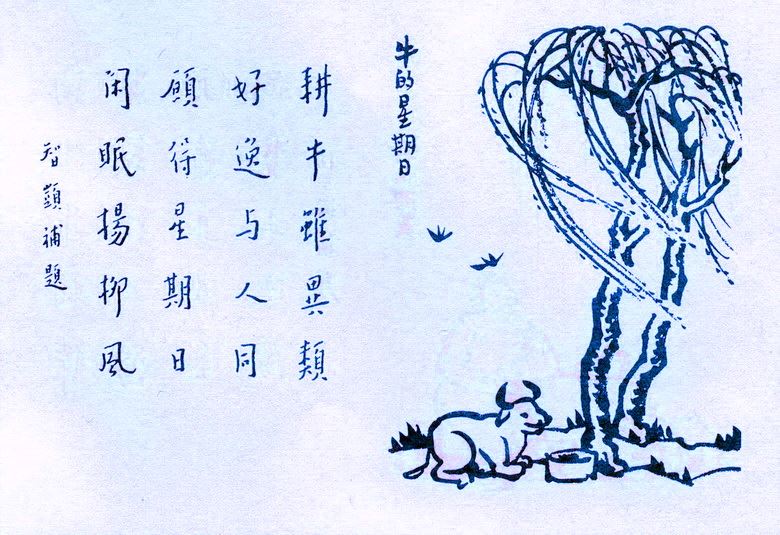 牛的星期日
耕牛雖異類
好逸与人同
願得星期日
闲眠楊柳風
智顗補題